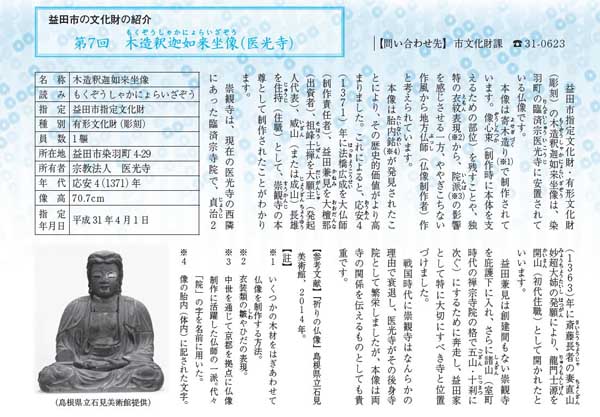 益田市の文化財の紹介
第7回 木造釈迦如来坐像(医光寺)
もくぞうしゃかにょらいざぞう
【問い合わせ先】 市文化財課 ☎31-0623
益田市指定文化財・有形文化財
(彫刻)の木造釈迦如来坐像は、染
羽町の臨済宗医光寺に安置されて
いる仏像です。
本像は寄木造り(※1)で制作されて
います。像心束(制作時に本体を支
えるための部位)を残すことや、独
特の衣紋表現(※2)から、院派(※3)の影響
を感じさせる一方、ややぎこちない
作風から地方仏師(仏像制作者)作
と考えられています。
本像は胎内銘(※4)が発見されたこ
とにより、その歴史的価値がより高
まりました。これによると、応安4
(1371)年に法橋広成を大仏師
(制作責任者)、益田兼見を大檀那
(出資者)、祖峰土禅を大願主(発起
人代表)、威山(または成山)長雄
を住持(住職)として、崇観寺の本
尊として制作されたことがわかり
ます。
崇観寺は、現在の医光寺の西隣
にあった臨済宗寺院で、貞治2
名 称 木造釈迦如来坐像
読 み もくぞうしゃかにょらいざぞう
指 定 益田市指定文化財
種 別 有形文化財(彫刻)
員 数 1躯
所在地 益田市染羽町 4-29
所有者 宗教法人 医光寺
年 代 応安4(1371)年
像 高 70.7cm
指 定年月日 平成31年4月1日
(1363)年に斎藤長者の妻直山
妙超大姉の発願により、龍門士源を
開山(初代住職)として開かれたと
いいます。
益田兼見は創建間もない崇観寺
を庇護下に入れ、さらに諸山(室町
時代の禅宗寺院の格で五山・十刹に
次ぐ)にするために奔走し、益田家
として特に大切にすべき寺と位置
づけました。
戦国時代に崇観寺はなんらかの
理由で衰退し、医光寺がその後身寺
院として繁栄しましたが、本像は両
寺の関係を伝えるものとしても貴
重です。
【参考文献】『祈りの仏像』島根県立石見
美術館、2014年。
【註】
※1 いくつかの木材をはぎあわせて
仏像を制作する方法。
※2 衣装類の皺やひだの表現。
※3 中世を通じて京都を拠点に仏像
制作に活躍した仏師の一派。代々
「院」の字を名前に用いた。
※4 像の胎内(体内)に記された文字。
(島根県立石見美術館提供)